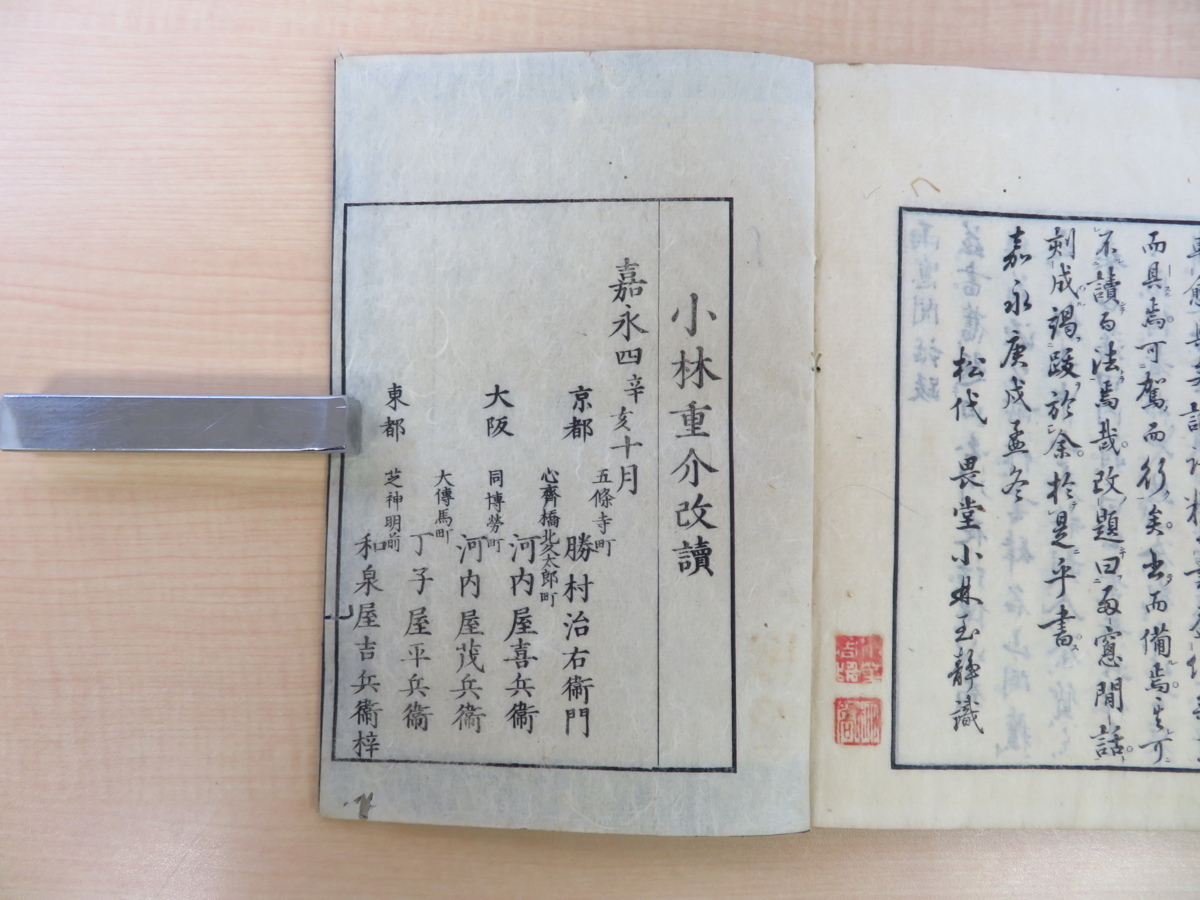 而具焉可駕而行矣書而備焉
不讀百法焉哉改題曰雨窓閒話
刻成謁跋於余於是乎書
嘉永庚戌孟冬
松代 畏堂小林玉静識
小林重介改讀
嘉永四辛亥十月
京都 五條寺町 勝村治右衛門
大阪 心齊橋北久太郎町 河内屋喜兵衞
同博勞町 河内屋茂兵衞
東都 大傳馬町 丁子屋平兵衞
芝神明前 和泉屋吉兵衞梓